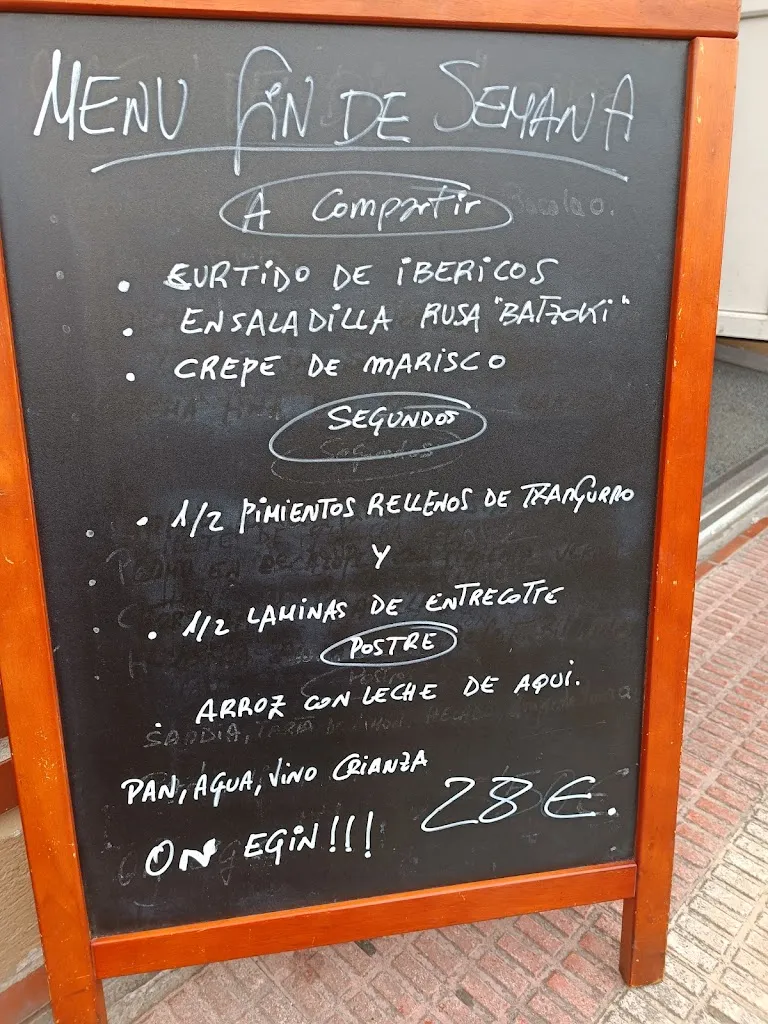 MENU FIN DE SEMANA
A Compartir
• SURTIDO DE IBERICOS
• ENSALADILLA RUSA "BATZOKI"
• CREPE DE MARISCO
SEGUNDOS
Segundos
• 1/2 PIMIENTOS RELLENOS DE TXANGURRO
Y
• 1/2 LAMINAS DE ENTRECOTTE
POSTRE
• ARROZ CON LECHE DE AQUI.
SANDIA,
PAN, AGUA, VINO CRIANZA
28€.
ON EGIN!!!